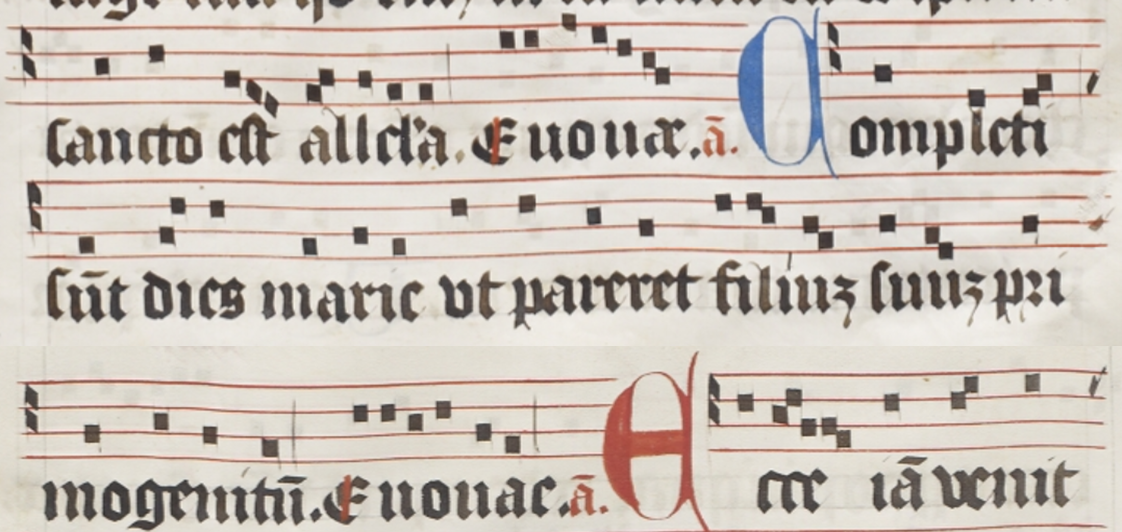 sancto est allel'a. E uouae. ā. Completi
sūt dies marie vt pareret filiuʒ suuʒ pri
mogenitū. E uouae. ā. Ecce iā venit